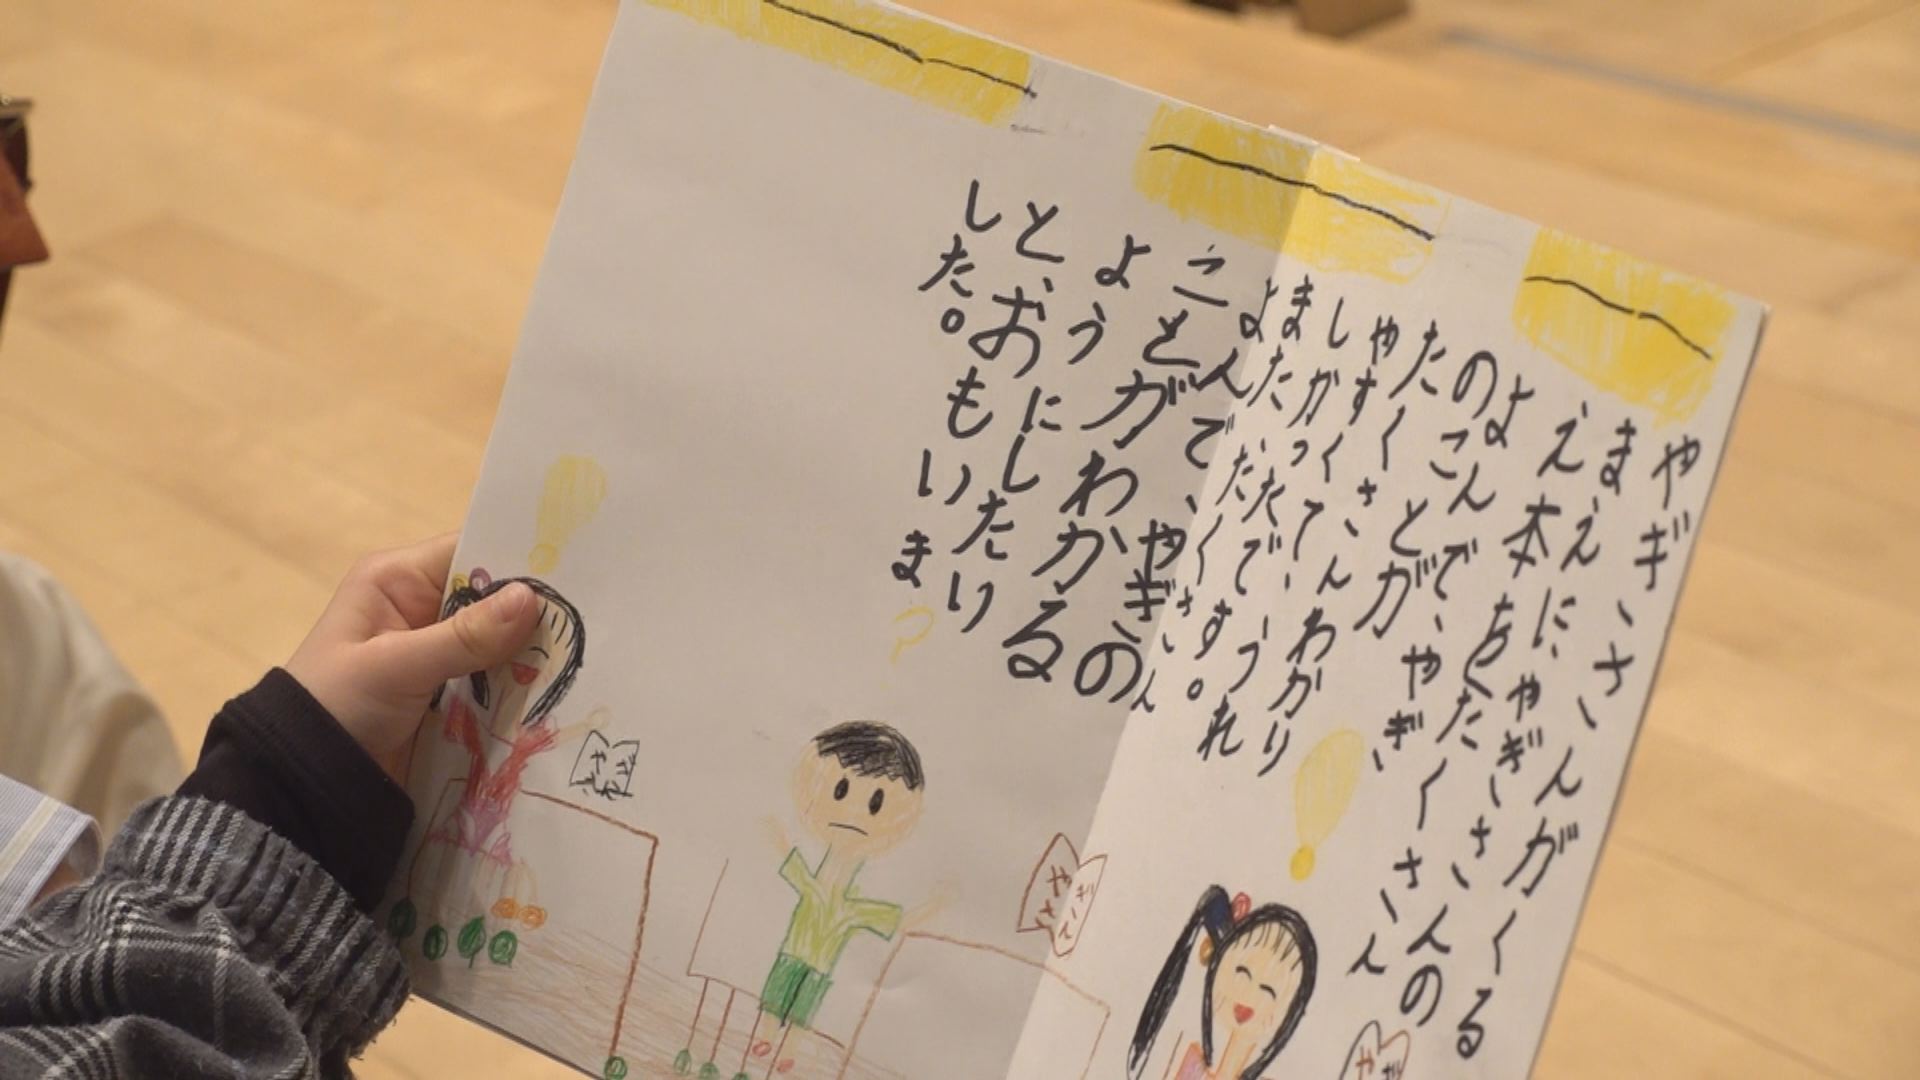 やぎさんがくる
まえにやぎさんの
え本をたくさん
よんで、やぎ
のことが
たくさんわかり
やすくて、うれ
しかったです。
また、たくさん
よんで、やぎの
ことがわかる
ようにしたり
と、おもいま
した。